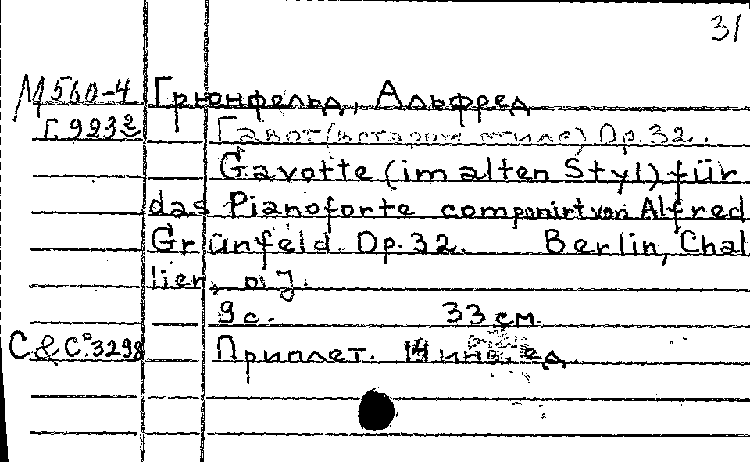 31
М560-4 Грюнфельд, Альфред
Г.9232 Гавот (в старом стиле) Op.32.
Gavotte (im alten Styl) für
das Pianoforte componirt von Alfred
Grünfeld. Op.32. Berlin, Chal
lier, o. J.
9 с. 33 см.
C & C.º3298 Приплет. 14 инв. ед.